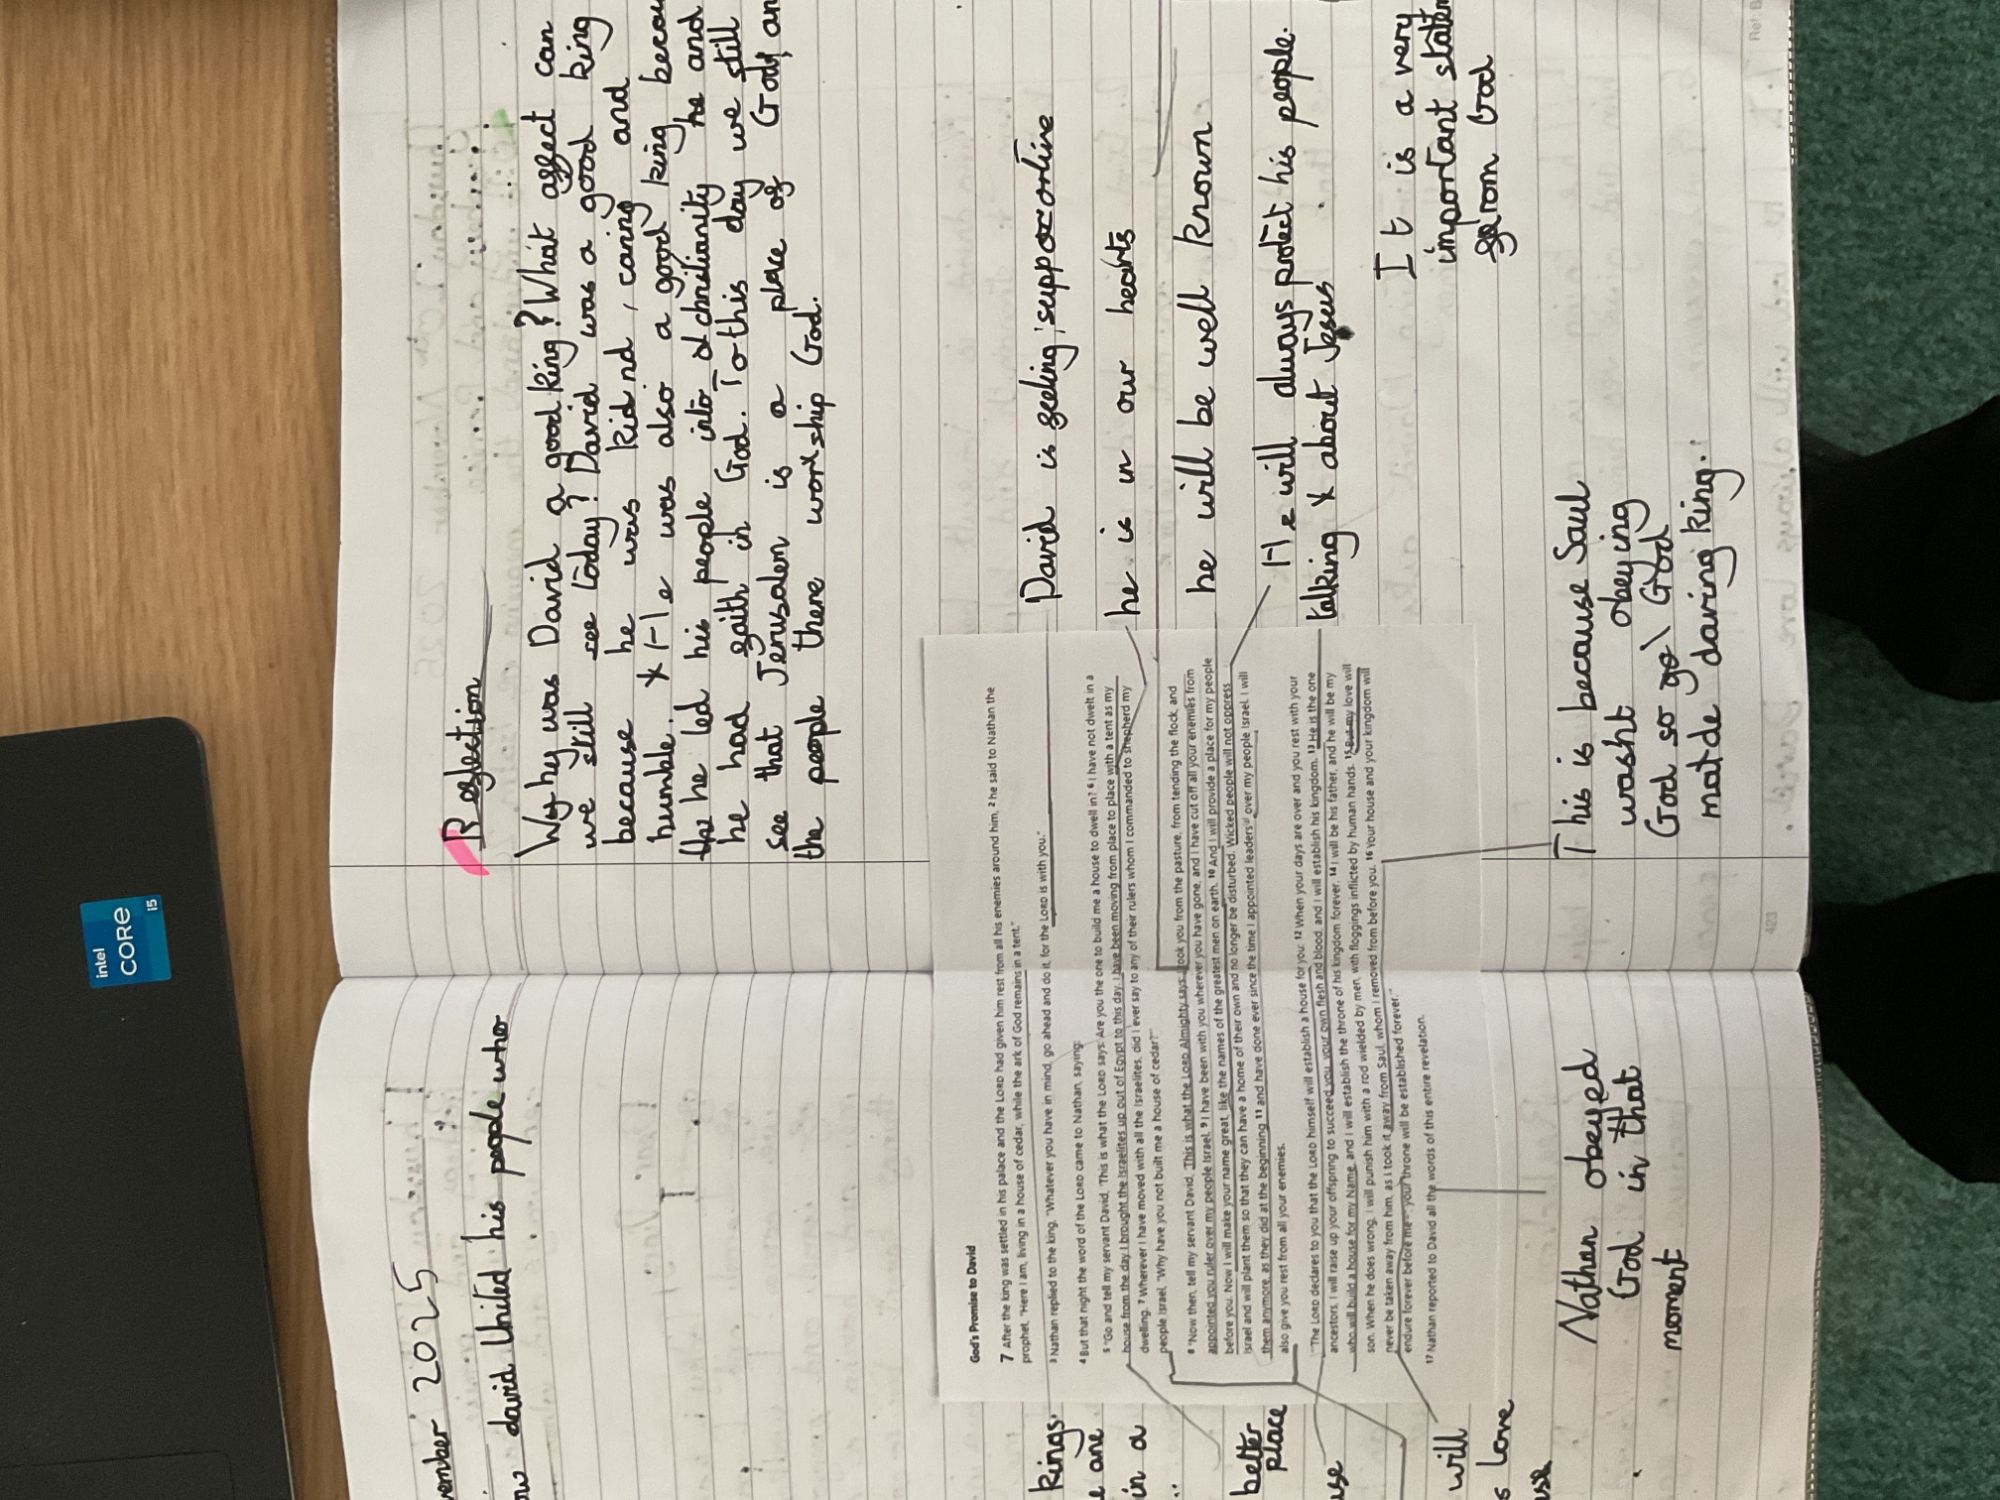 vember 2025
ow david United his people who
Reflection
Wyhy was David a good king? What affect can
we still see today? David was a good king
because he was kidnd, caring and
humble. x He was also a good king becau
the he led his people into christianity he and
he had faith in God. To this day we still
see that Jerusalem is a place of God, an
the people there workship God.
God's Promise to David
7 After the king was settled in his palace and the LORD had given him rest from all his enemies around him, 2 he said to Nathan the
prophet, "Here I am, living in a house of cedar, while the ark of God remains in a tent."
3 Nathan replied to the king, "Whatever you have in mind, go ahead and do it, for the LORD is with you."
4 But that night the word of the LORD came to Nathan, saying:
5 "Go and tell my servant David, 'This is what the LORD says: Are you the one to build me a house to dwell in? 6 I have not dwelt in a
house from the day I brought the Israelites up out of Egypt to this day. I have been moving from place to place with a tent as my
dwelling. 7 Wherever I have moved with all the Israelites, did I ever say to any of their rulers whom I commanded to shepherd my
people Israel, "Why have you not built me a house of cedar?"'
8 "Now then, tell my servant David, 'This is what the LORD Almighty says: I took you from the pasture, from tending the flock, and
appointed you ruler over my people Israel. 9 I have been with you wherever you have gone, and I have cut off all your enemies from
before you. Now I will make your name great, like the names of the greatest men on earth. 10 And I will provide a place for my people
Israel and will plant them so that they can have a home of their own and no longer be disturbed. Wicked people will not oppress
them anymore, as they did at the beginning 11 and have done ever since the time I appointed leaders over my people Israel. I will
also give you rest from all your enemies.
"'The LORD declares to you that the LORD himself will establish a house for you: 12 When your days are over and you rest with your
ancestors, I will raise up your offspring to succeed you, your own flesh and blood, and I will establish his kingdom. 13 He is the one
who will build a house for my Name, and I will establish the throne of his kingdom forever. 14 I will be his father, and he will be my
son. When he does wrong, I will punish him with a rod wielded by men, with floggings inflicted by human hands. 15 But my love will
never be taken away from him, as I took it away from Saul, whom I removed from before you. 16 Your house and your kingdom will
endure forever before me; your throne will be established forever.'"
17 Nathan reported to David all the words of this entire revelation.
David is feeling supportive
he is in our hearts
he will be well known
He will always protect his people.
talking x about Jesus
It is a very
important statem
from God
This is because Saul
wasnt obeying
God so God
made daving king.
Nathen obeyed
God in that
moment
kings.
e are
in a
better
place
use
will
s love
use
intel
CORE
i5
423
Ref: B